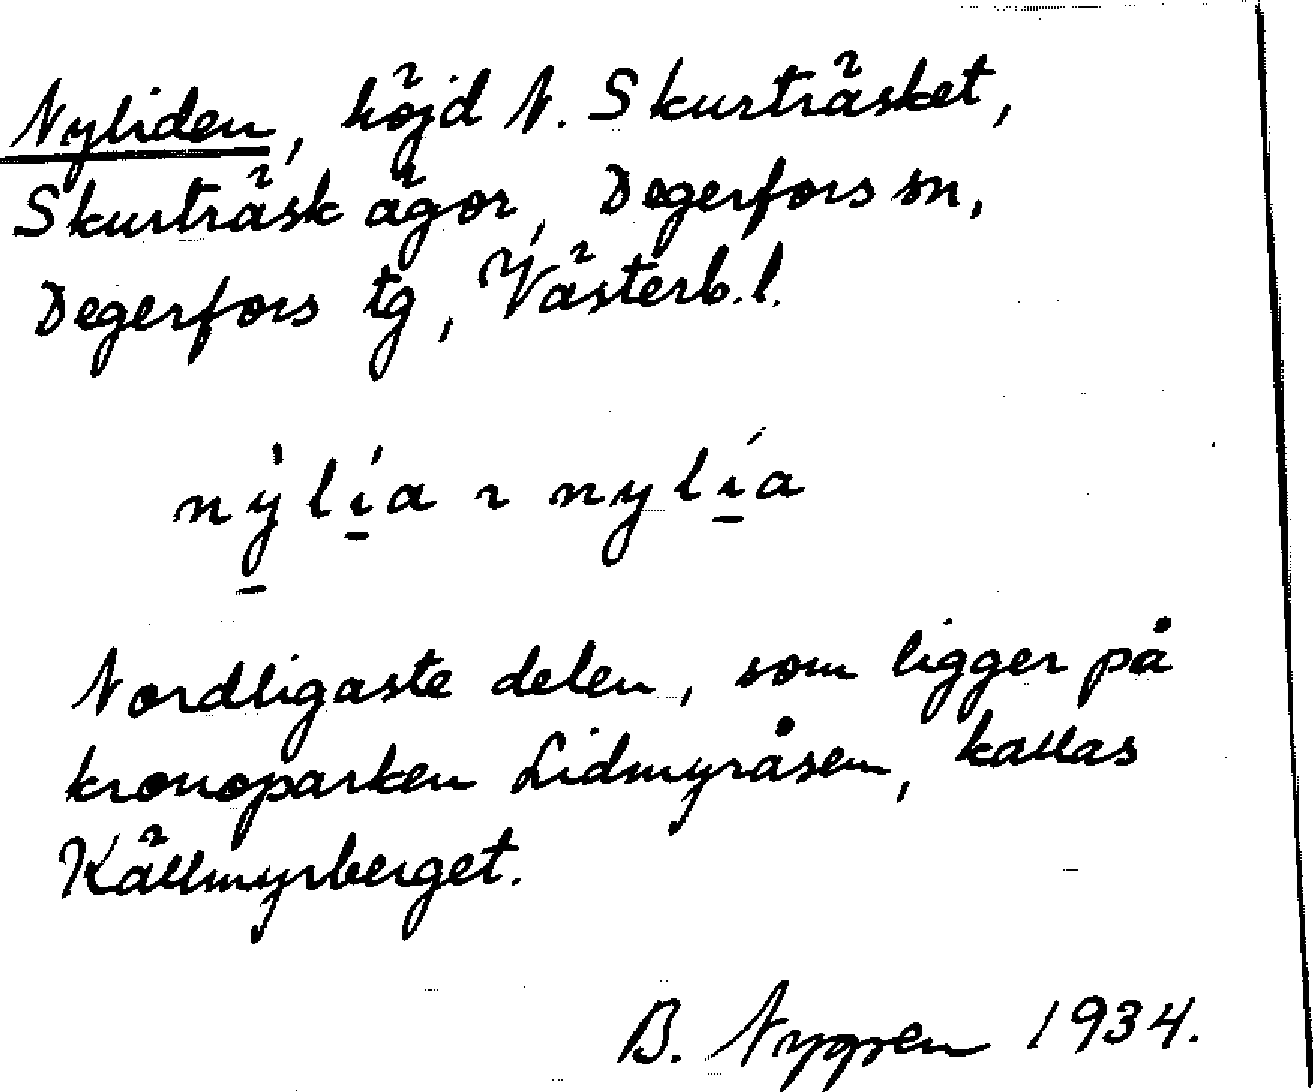 Nyliden, höjd N. Skurträsket,
Skurträsk ägor, Degerfors sn,
Degerfors tg, Västerb. l.
nỳ̠lí̠a ~ nylí̠a
Nordligaste delen, som ligger på
kronoparken Lidmyråsen, kallas
Källmyrberget.
B. Nygren 1934.